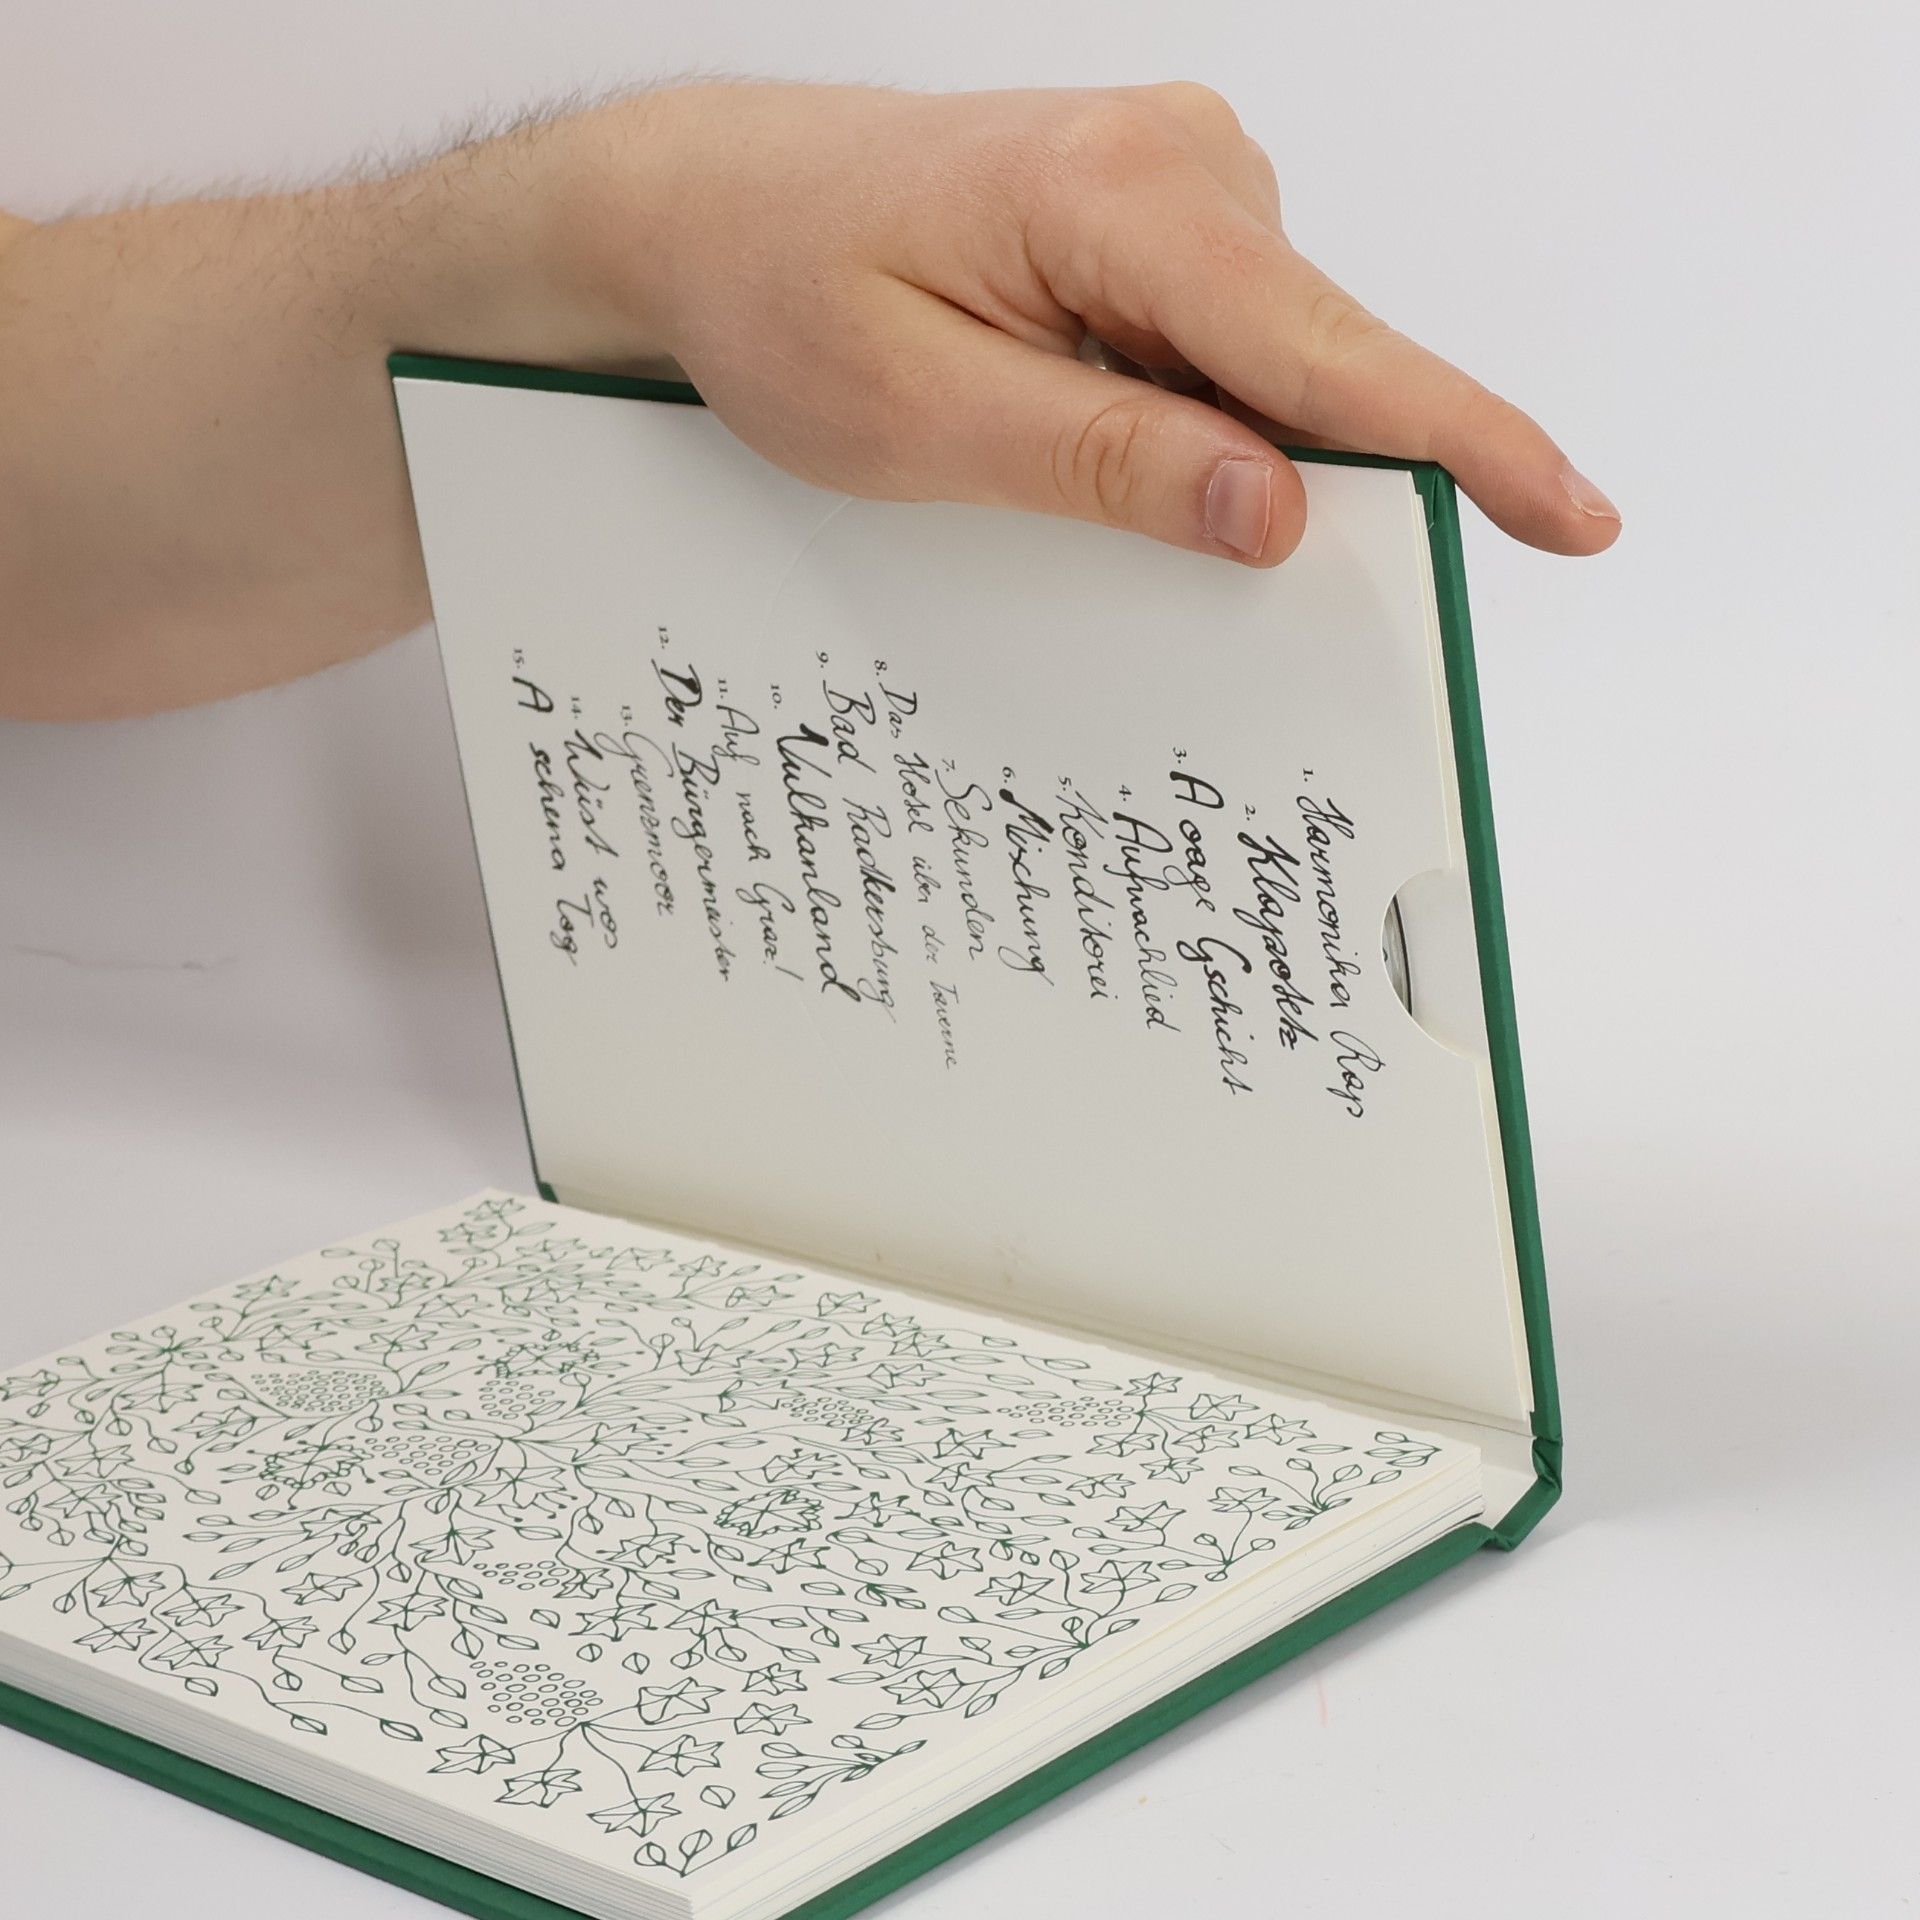 1. Harmonika Rap
2. Klapotetz
3. A oage Gschicht
4. Aufwachlied
5. Konditorei
6. Mischung
7. Sekunden
8. Das Hotel über der Taverne
9. Bad Radkersburg
10. Vulkanland
11. Auf nach Graz!
12. Der Bürgermeister
13. Grenzmoor
14. Wüst wos
15. A schena Tog